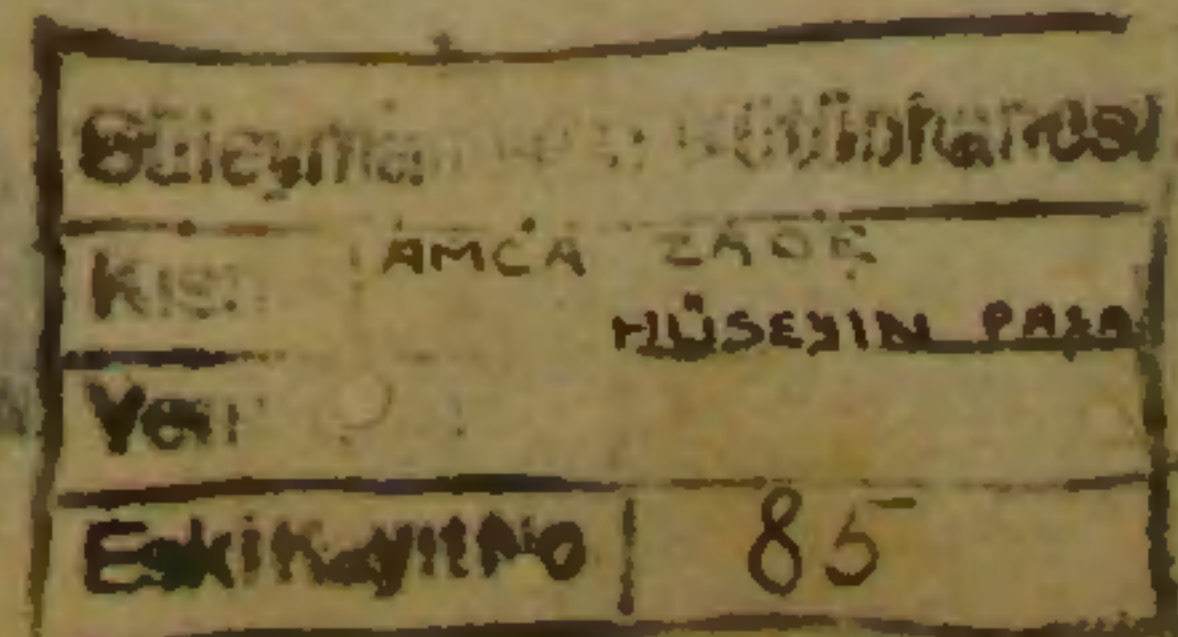 Süleymaniye Kütüphanesi
Kısmı AMCA ZADE
HÜSEYİN PAŞA
Yeni
Eski Kayıt No 85